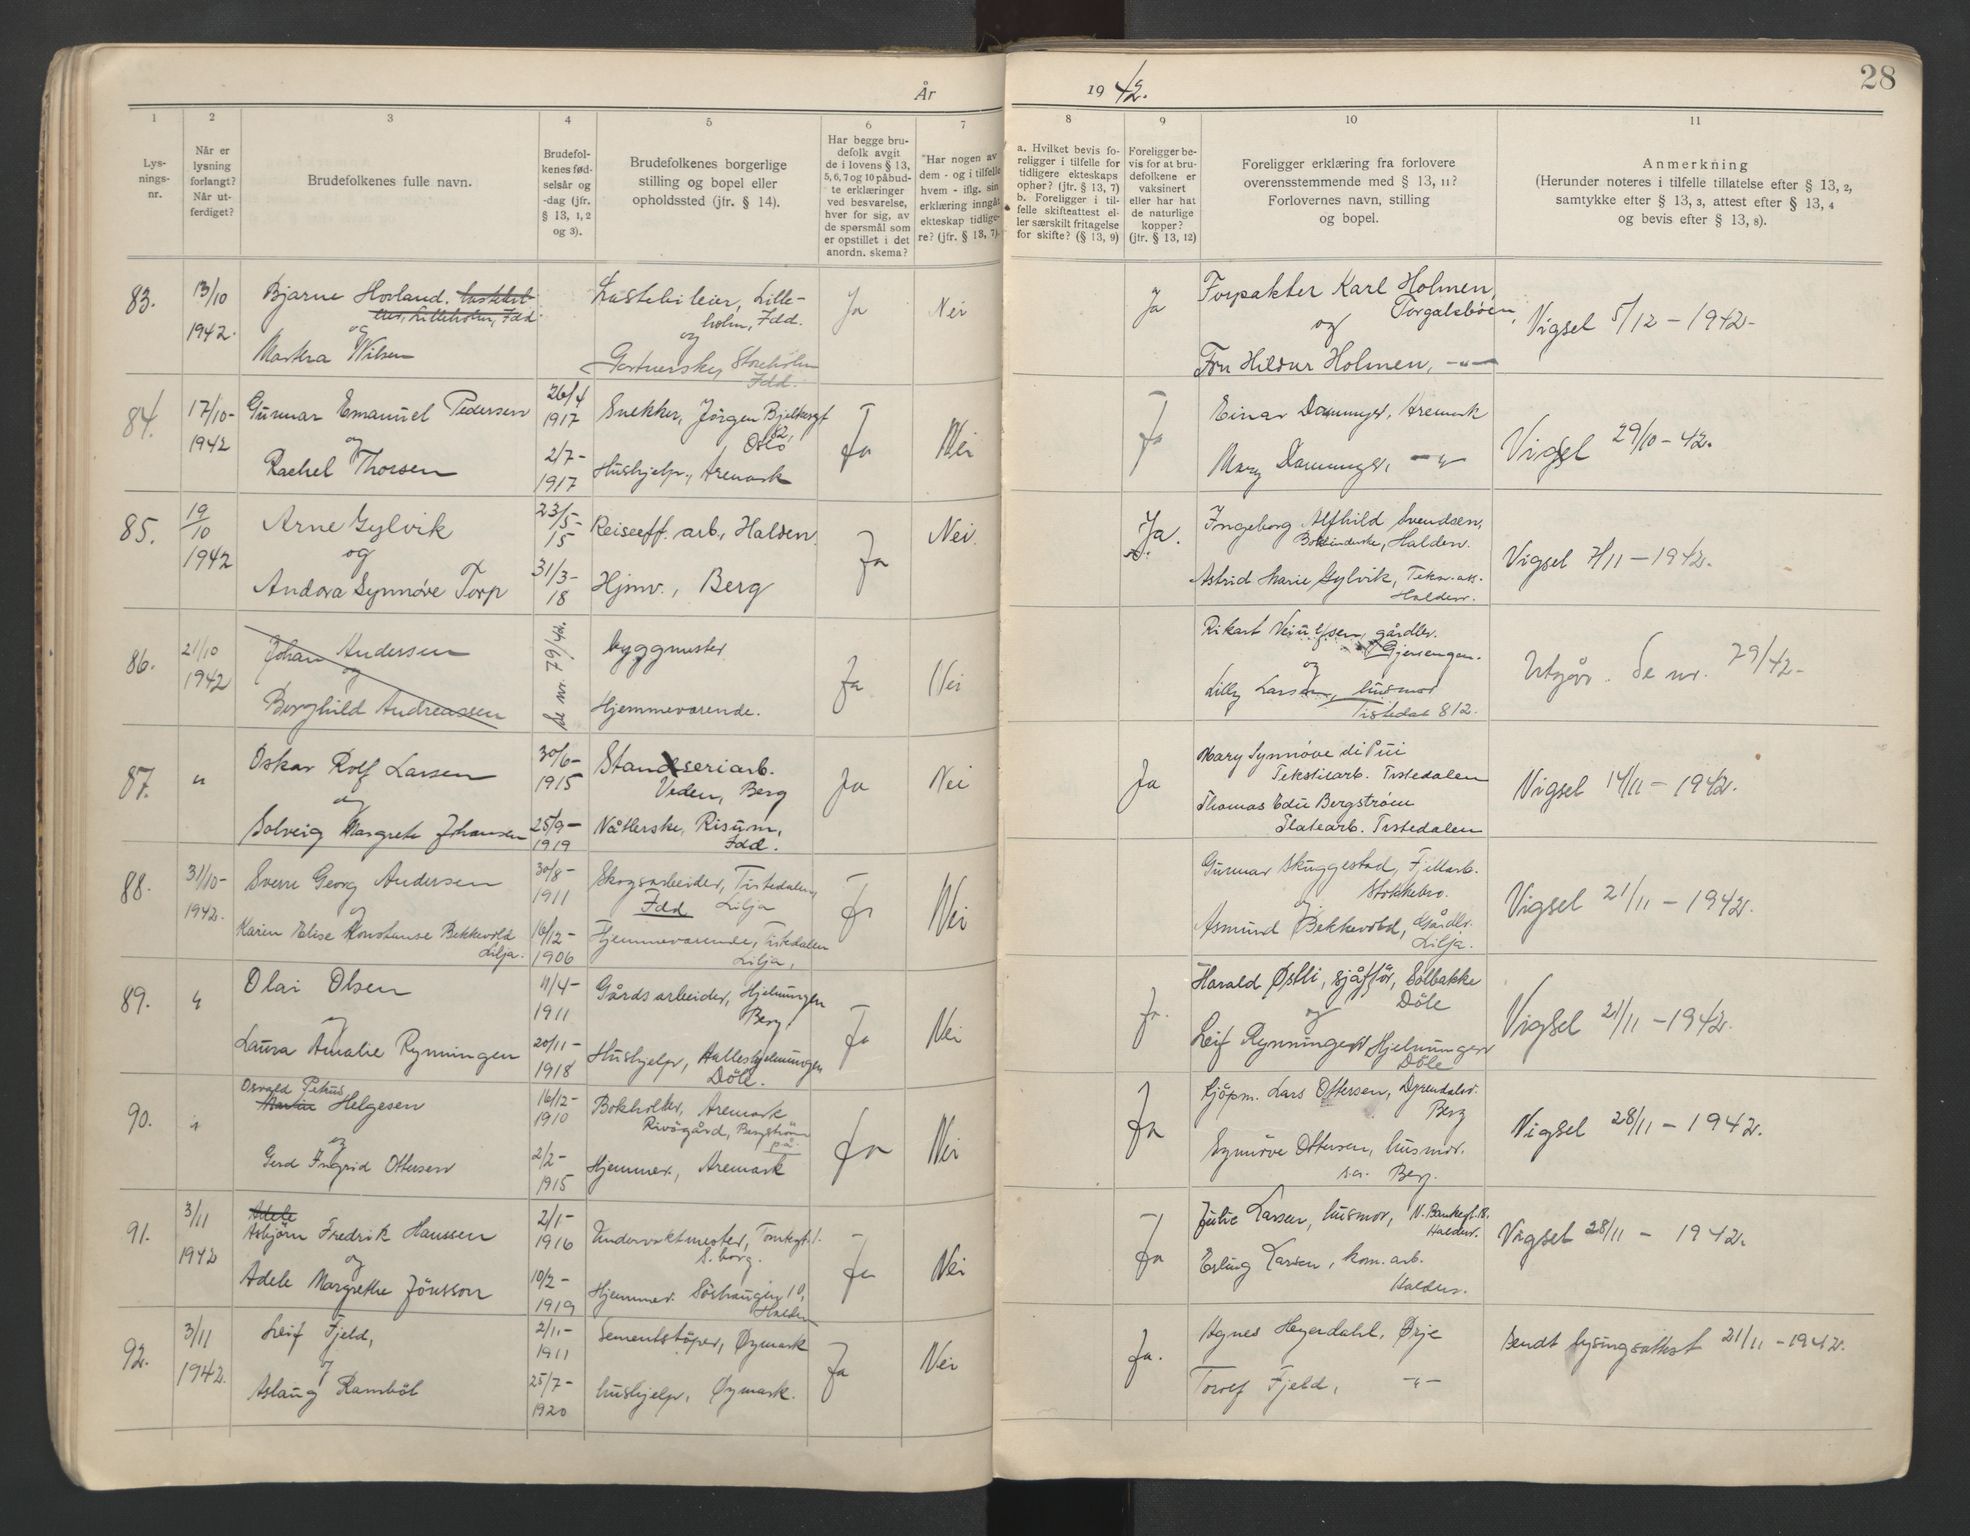 År
19 42.
28
1
2
3
4
5
6
7
8
9
10
11
Lys-
nings-
nr.
Når er
lysning
forlangt?
Når ut-
ferdiget?
Brudefolkenes fulle navn.
Brudefol-
kenes fød-
selsår og
-dag (jfr.
§ 13, 1, 2
og 3).
Brudefolkenes borgerlige
stilling og bopel eller
opholdssted (jfr. § 14).
Har begge bru-
defolk avgit
de i lovens § 13,
5, 6, 7 og 10 påbud-
te erklæringer
ved besvarelse,
hver for sig, av
de spørsmål som
er opstillet i det
anordn. skema?
Har nogen av
dem - og i tilfelle
hvem - iflg. sin
erklæring inngåt
ekteskap tidlige-
re? (jfr. § 13, 7).
a. Hvilket bevis fo-
religger i tilfelle for
tidligere ekteskaps
ophør? (jfr. § 13, 7)
b. Foreligger i til-
felle skifteattest el-
ler særskilt fritagelse
for skifte? (§ 13, 9)
Foreligger be-
vis for at bru-
defolkene er
vaksinert
eller har hat
de naturlige
kopper?
(jfr. § 13, 12)
Foreligger erklæring fra forlovere
overensstemmende med § 13, 11?
Forlovernes navn, stilling
og bopel.
Anmerkning
(Herunder noteres i tilfelle tillatelse efter § 13, 2,
samtykke efter § 13, 3, attest efter § 13, 4
og bevis efter § 13, 8).
83.
13/10
1942.
Bjarne Hovland. Lastebil-
eier, Lilleholm, Idd.
og
Nilsen
Lastebileier, Lille-
holm, Idd.
og
Storeholm
Idd.
Ja
Nei
Ja
Forpakter Karl Holmen,
Torgalsbøen,
og
Fru Hildur Holmen, -"-
Vigsel 5/12 - 1942.
84.
17/10-
1942
Gunnar Emanuel Pedersen
og
Rachel Thorsen
26/4
1917
2/7-
1917
Snekker, Jørgen Bjelkesgt
82,
Oslo
Hushjelp., Aremark
Ja
Nei
Ja
Einar Dammyr, Aremark
Mary Dammyr, -"-
Vigsel 29/10-42.
85.
19
/10
1942
Arne Gylvik
og
Andora Synnøve Torp
23/5-
15
31/3-
18
Reiseeff. arb., Halden.
Hjmv., Berg
Ja
Nei.
Ja.
Ingeborg Alfhild Svendsen,
Bokbinderske, Halden.
Astrid Marie Gylvik,
Halden.
Vigsel 7/11 - 1942.
86.
21/10
1942
Johan Andersen
og
Borghild Andreassen
Se nr. 79/42.
byggmester
Hjemmeværende.
Ja
Nei
Rikart gårdbr.
Gjerengen.
og
Lilly Larsen, husmor
Tistedal 812.
Utgår. Se nr. 79/42-
87.
"
Oskar Rolf Larsen
og
Solveig Margrete Johansen
30/6-
1915
25/9-
1919
Veden, Berg
Nåtlerske, Risum,
Idd.
Ja
Nei
Ja
Mary Synnøve di Pui
Tekstilarb. Tistedalen
Thomas Edu Bergstrøm
Platearb. Tistedalen
Vigsel 14/11 - 1942.
88.
31/10-
1942.
Sverre Georg Andersen
og
Karen Elise Konstanse Bekkevold
Lilja.
30/8-
1911
16/12-
1906
Skogsarbeider, Tistedalen,
Idd Lilja
Hjemmeværende, Tistedalen
Lilja,
Ja
Nei
Gunnar Skuggestad, Fjellarb.
Stokkebro.
og
Asmund Bekkevold, Gårdbr.
Lilja.
Vigsel 21/11 - 1942.
89.
"
Olai Olsen
og
Laura Amalie Rynningen
11/4-
1911
20/11-
1918
Gårdsarbeider, Hjelmungen
Berg.
Hushjelp, Halleshjelmungen
Døle.
Ja
Nei
Ja.
Harald Østli, sjåfför, Solbakke
Döle
og
Leif Rynningen Hjelmungen
Döle
Vigsel 21/11 - 1942.
90.
"
Osvald Petrus
Martin Helgesen
og
Gerd Ingrid Ottersen
16/12-
1910
2/2-
1915
Bokholder, Aremark
Rivögård, Bergström
på.
Hjemmev., Aremark
Ja
Nei
Ja
Kjöpm. Lars Ottersen,
Berg
Synnöve Ottersen, husmor.
s.s. Berg.
Vigsel 28/11 - 1942.
91.
3/11
1942
Adele
Asbjörn Fredrik Hanssen
og
Adele Margrethe Jönsson
2/1-
1916
10/2-
1919
Undervaktmester, Tomtegt. 1.
S.borg.
Hjemmev. Sörhaugen 10,
Halden
Ja
Nei
Ja
Julie Larsen, husmor, N. Bankegt. 18.
Halden.
Erling Larsen, kom. arb.
Halden.
Vigsel 28/11 - 1942.
92.
3/11
1942.
Leif Fjeld,
og
Aslaug Ramböl
2/11-
1911
25/7-
1920
Sementstöper, Øymark
hushjelp, Øymark.
Ja
Nei
Ja.
Agnes Heyerdahl, Ørje
Torolf Fjeld, -"-
Sendt lysingsattest 21/11 - 1942.